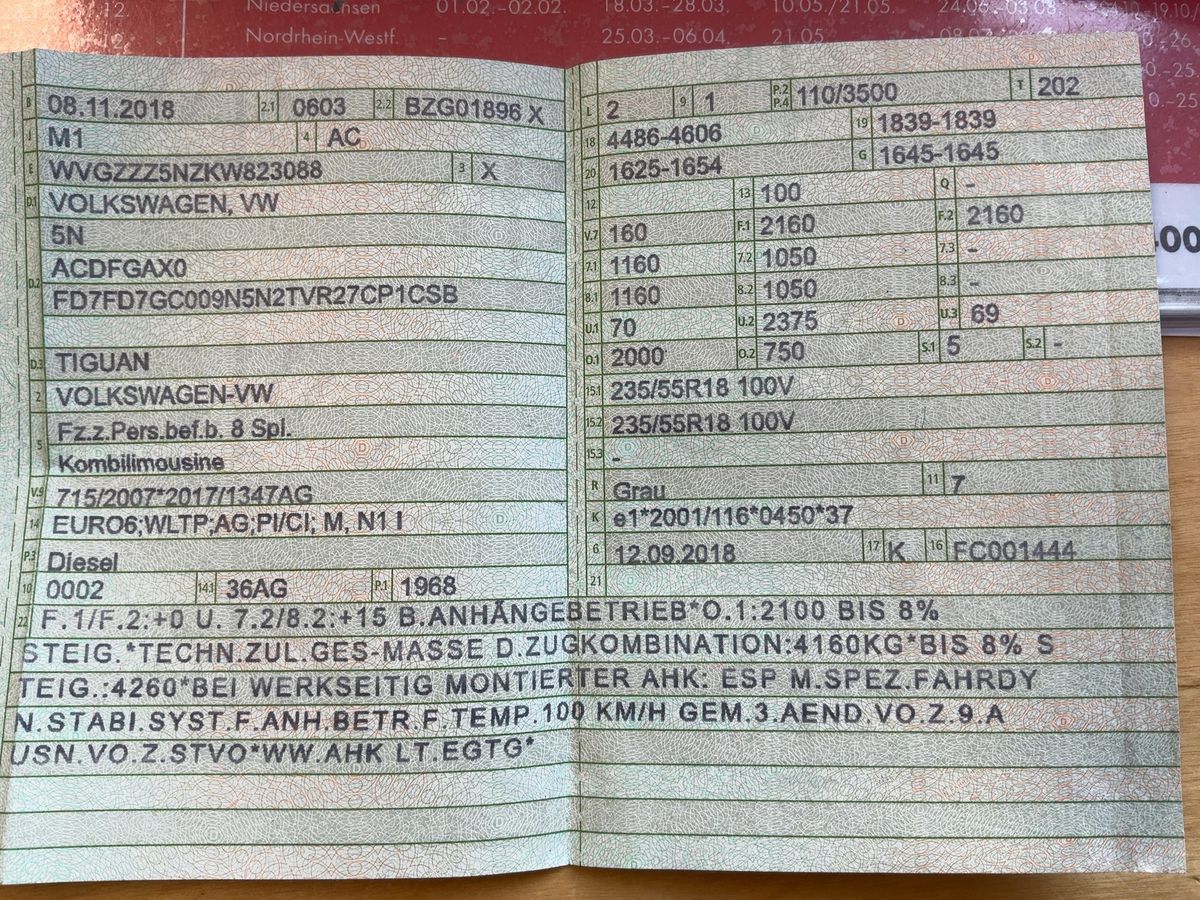 Niedersachsen 01.02.-02.02. 18.03.-28.03. 10.05./21.05.
Nordrhein-Westf. - 25.03.-06.04. 21.05.
B 08.11.2018 2.1 0603 2.2 BZG01896 X
J M1 4 AC
E WVGZZZ5NZKW823088 3 X
D.1 VOLKSWAGEN, VW
5N
D.2 ACDFGAX0
FD7FD7GC009N5N2TVR27CP1CSB
D.3 TIGUAN
2 VOLKSWAGEN-VW
5 Fz.z.Pers.bef.b. 8 Spl.
Kombilimousine
V.9 715/2007*2017/1347AG
14 EURO6;WLTP;AG;PI/CI; M, N1 I
P.3 Diesel
10 0002 14.1 36AG P.1 1968
L 2 9 1 P.2 P.4 110/3500 T 202
18 4486-4606 19 1839-1839
20 1625-1654 G 1645-1645
12 13 100 Q -
V.7 160 F.1 2160 F.2 2160
7.1 1160 7.2 1050 7.3 -
8.1 1160 8.2 1050 8.3 -
U.1 70 U.2 2375 U.3 69
O.1 2000 O.2 750 S.1 5 S.2 -
15.1 235/55R18 100V
15.2 235/55R18 100V
15.3 -
R Grau 11 7
K e1*2001/116*0450*37
6 12.09.2018 17 K 16 FC001444
21
22 F.1/F.2:+0 U. 7.2/8.2:+15 B.ANHÄNGEBETRIEB*O.1:2100 BIS 8%
STEIG.*TECHN.ZUL.GES-MASSE D.ZUGKOMBINATION:4160KG*BIS 8% S
TEIG.:4260*BEI WERKSEITIG MONTIERTER AHK: ESP M.SPEZ.FAHRDY
N.STABI.SYST.F.ANH.BETR.F.TEMP.100 KM/H GEM.3.AEND.VO.Z.9.A
USN.VO.Z.STVO*WW.AHK LT.EGTG*